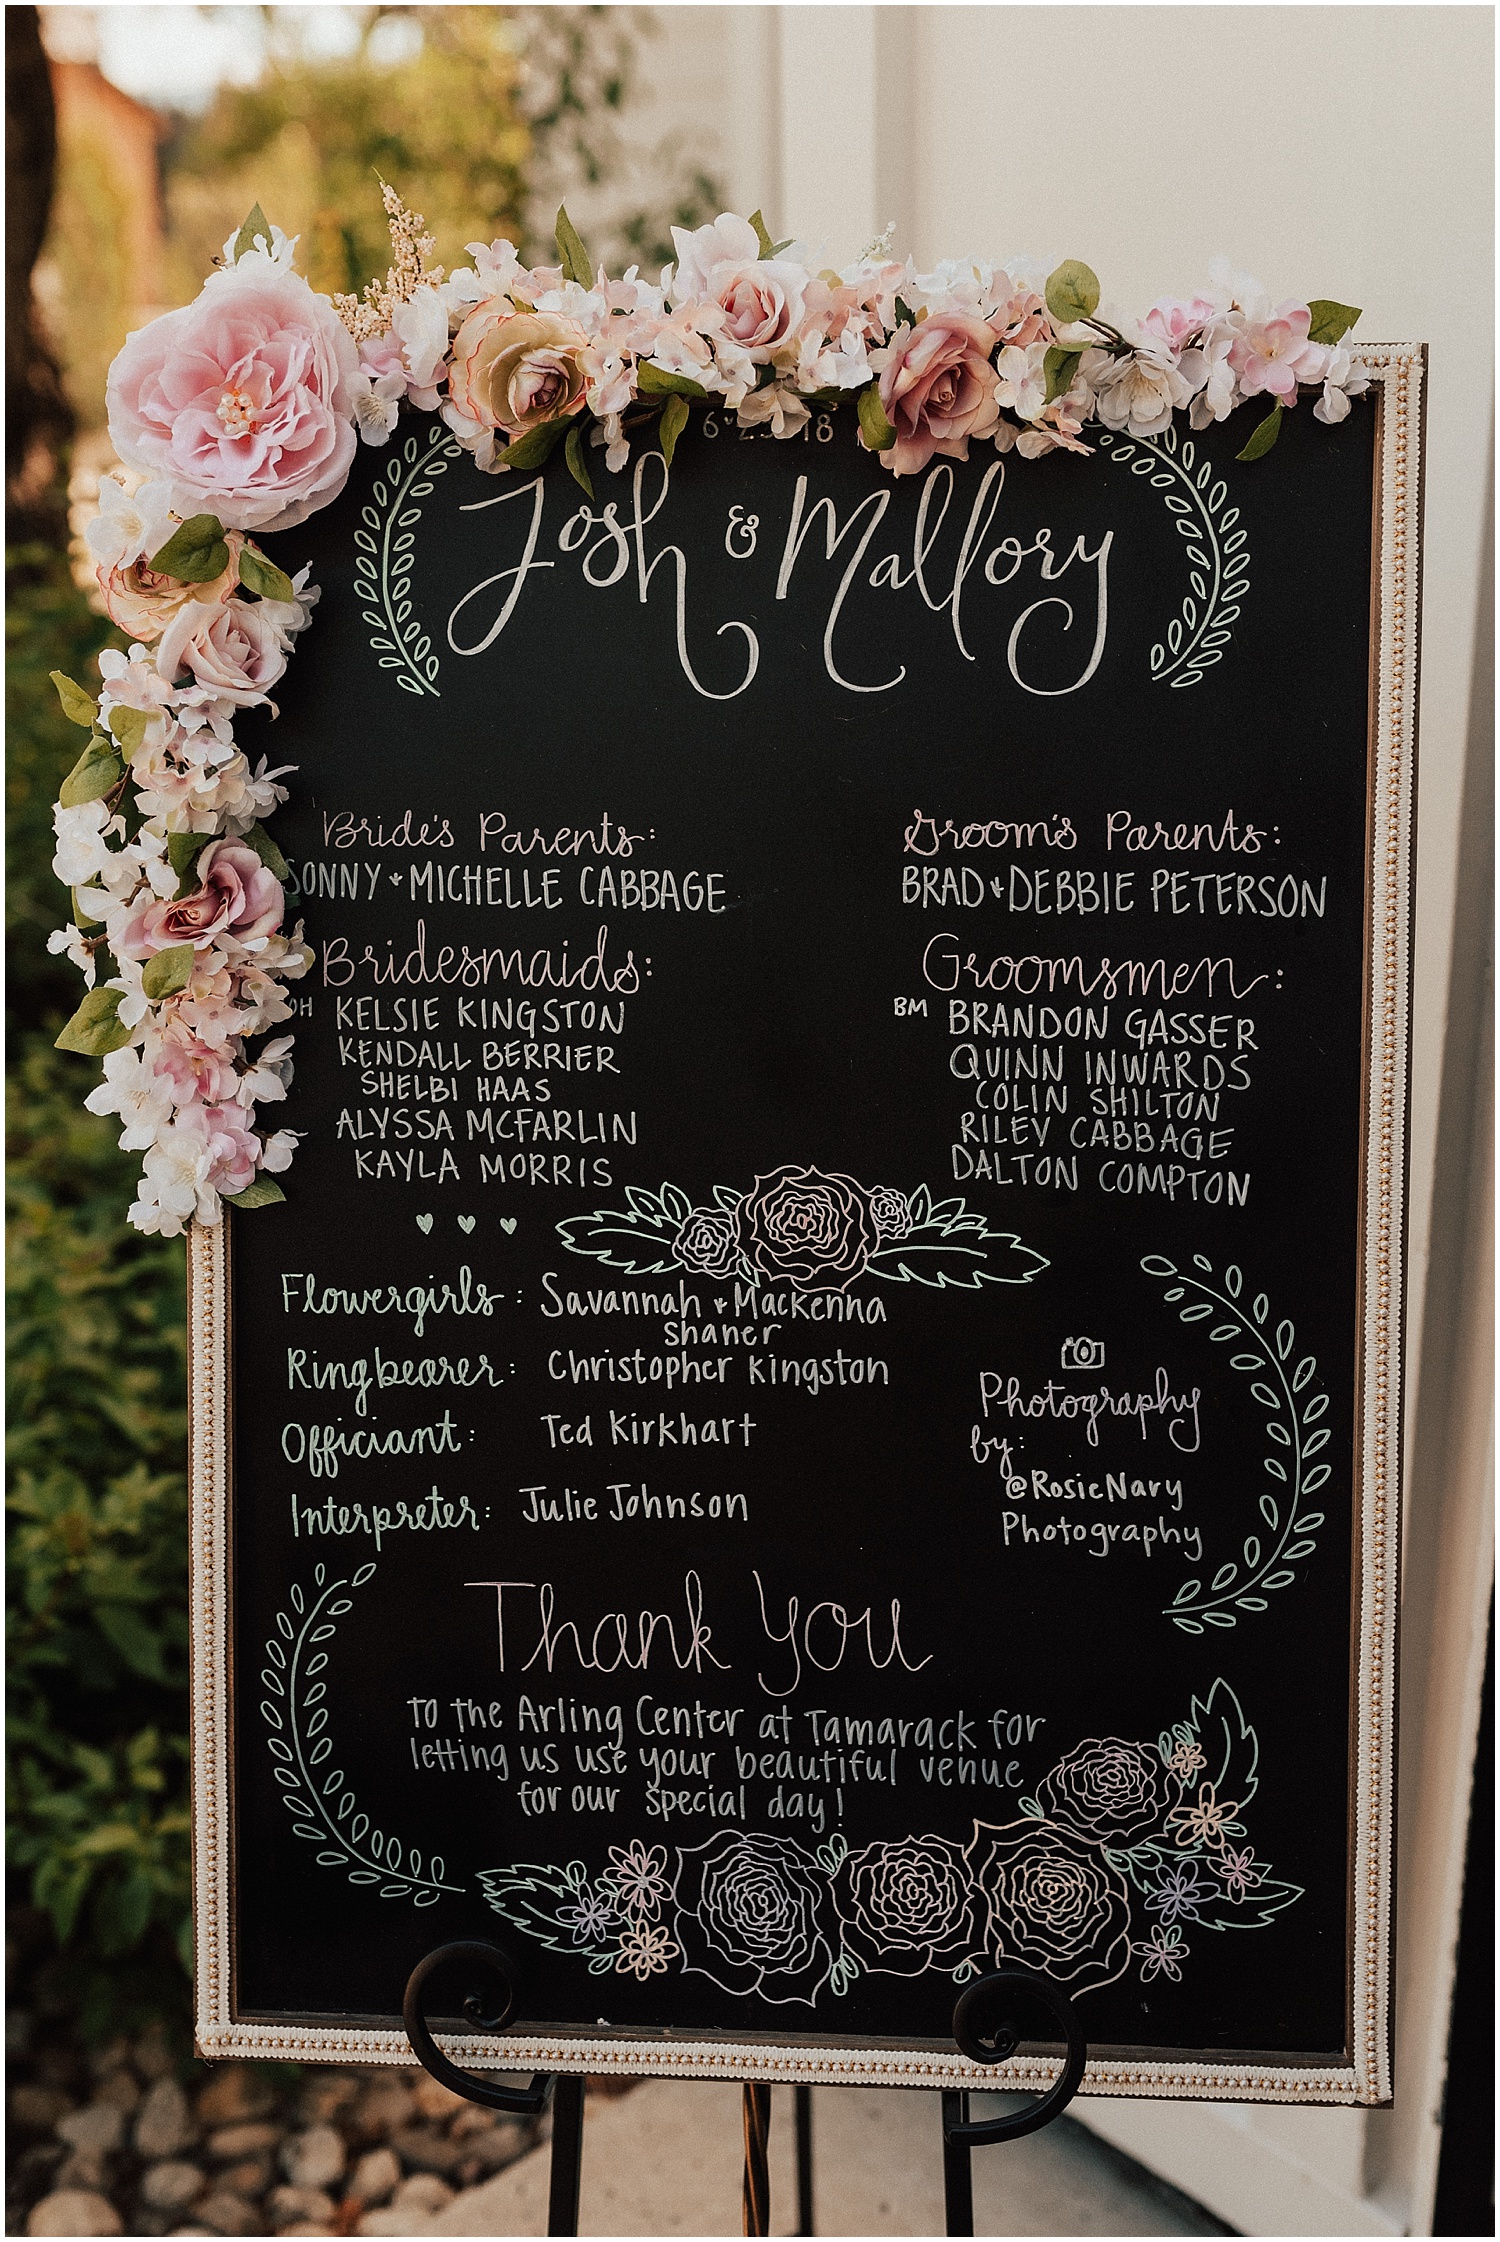 Josh & Mallory
Bride's Parents:
SONNY + MICHELLE CABBAGE
Bridesmaids:
KELSIE KINGSTON
KENDALL BERRIER
SHELBI HAAS
ALYSSA MCFARLIN
KAYLA MORRIS
Groom's Parents:
BRAD + DEBBIE PETERSON
Groomsmen:
BM BRANDON GASSER
QUINN INWARDS
COLIN SHILTON
RILEY CABBAGE
DALTON COMPTON
Flowergirls: Savannah + Mackenna
Shaner
Ringbearer: Christopher Kingston
Officiant: Ted Kirkhart
Interpreter: Julie Johnson
Photography
by:
@RosieNary
Photography
Thank You
to the Arling Center at Tamarack for
letting us use your beautiful venue
for our special day!